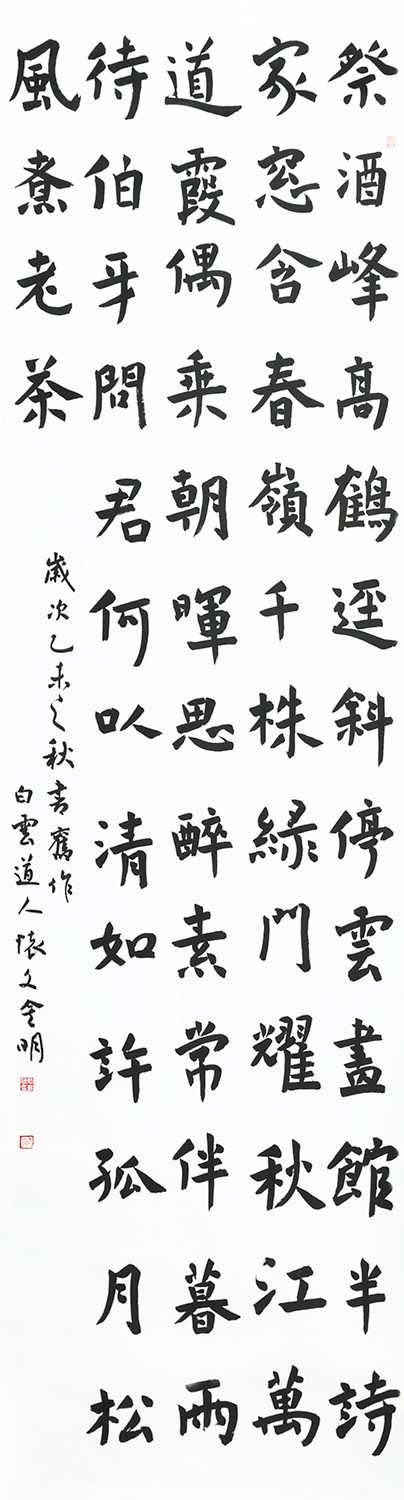 祭酒峰高鶴逕斜停雲畫館半詩
家窓含春嶺千株綠門耀秋江萬
道霞偶乘朝暉思醉素常伴暮雨
待伯牙問君何以清如許孤月松
風煮老茶
歲次乙未之秋書舊作
白雲道人懷文明